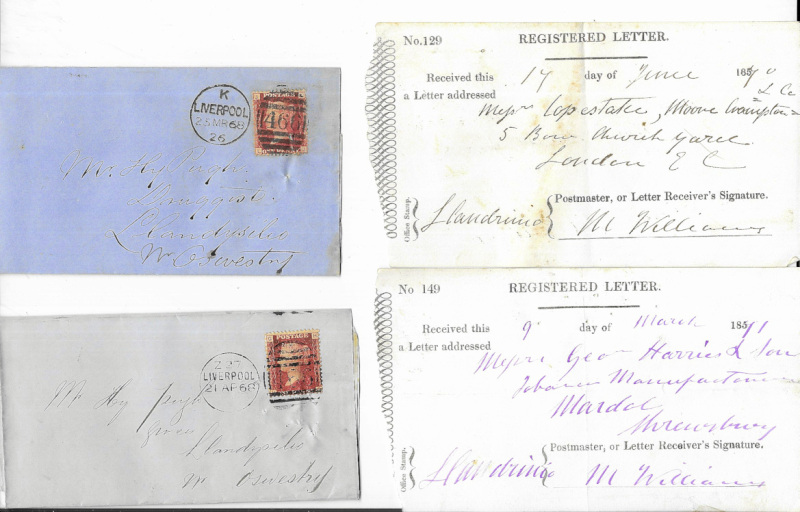 K
LIVERPOOL
25 MR 68
26
POSTAGE
466
Mr. Hy Pugh
Llandysilio
Nr Oswestry
Z
LIVERPOOL
21 AP 68
POSTAGE
Mr Hy Pugh
Llandysilio
Nr Oswestry
No. 129
REGISTERED LETTER.
Received this 17 day of June 18
a Letter addressed
Messrs Copestake, Moore Crampton & Co
5 Bow Church Yard
London E C
Office Stamp.
Postmaster, or Letter Receiver's Signature.
Llandrinio
M Williams
No 149
REGISTERED LETTER.
Received this 9 day of March 18
a Letter addressed
Messrs Geo Harris & Son
Tobacco Manufacturers
Mardol
Shrewsbury
Office Stamp.
Postmaster, or Letter Receiver's Signature.
Llandrinio
M Williams